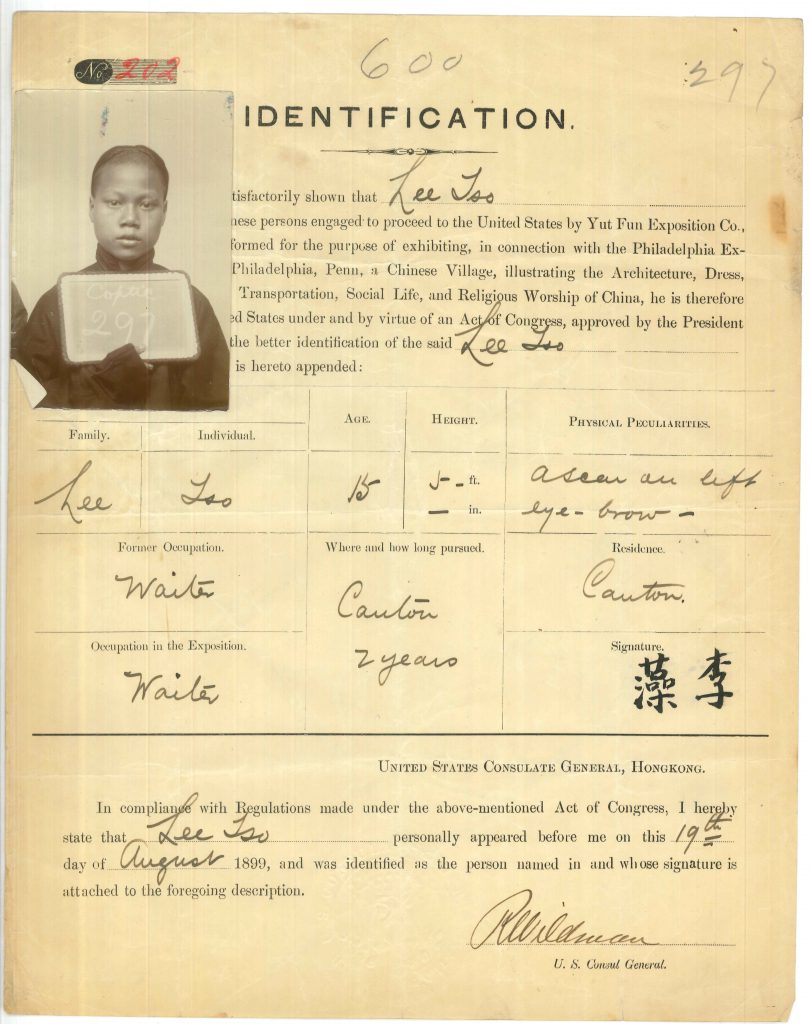 No. 202
600
297
IDENTIFICATION.
tisfactorily shown that Lee Tso
nese persons engaged to proceed to the United States by Yut Fun Exposition Co.,
formed for the purpose of exhibiting, in connection with the Philadelphia Ex-
Philadelphia, Penn, a Chinese Village, illustrating the Architecture, Dress,
Transportation, Social Life, and Religious Worship of China, he is therefore
ed States under and by virtue of an Act of Congress, approved by the President
the better identification of the said Lee Tso
is hereto appended:
297
Family. Individual. AGE. HEIGHT. PHYSICAL PECULIARITIES.
Lee Tso 15 5 - ft. a scar on left
— in. eye-brow —
Former Occupation. Where and how long pursued. Residence.
Waiter Canton Canton.
2 years
Occupation in the Exposition. Signature.
Waiter 李藻
UNITED STATES CONSULATE GENERAL, HONGKONG.
In compliance with Regulations made under the above-mentioned Act of Congress, I hereby
state that Lee Tso personally appeared before me on this 19th
day of August 1899, and was identified as the person named in and whose signature is
attached to the foregoing description.
RWildman
U. S. Consul General.